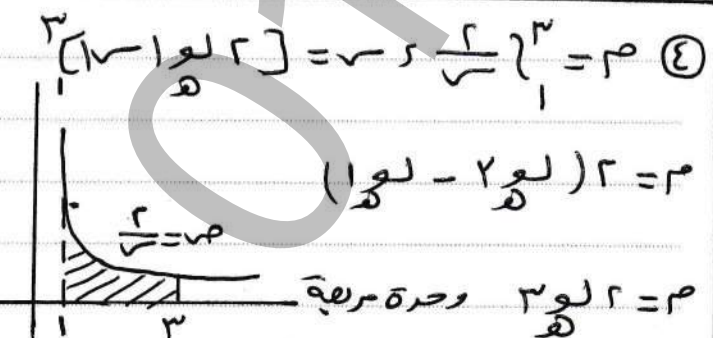 ④ م = ∫₁³ ٢/س ء س = [٢ لو_هـ |س|]₁³
م = ٢(لو_هـ ٣ − لو_هـ ١)
ص = ٢/س
م = ٢ لو_هـ ٣ وحدة مربعة
١ ٣